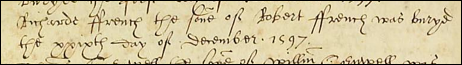 Richarde ffrench the sone of Robert ffrench was buryed
the xxixth day of december 1597
sone of willm